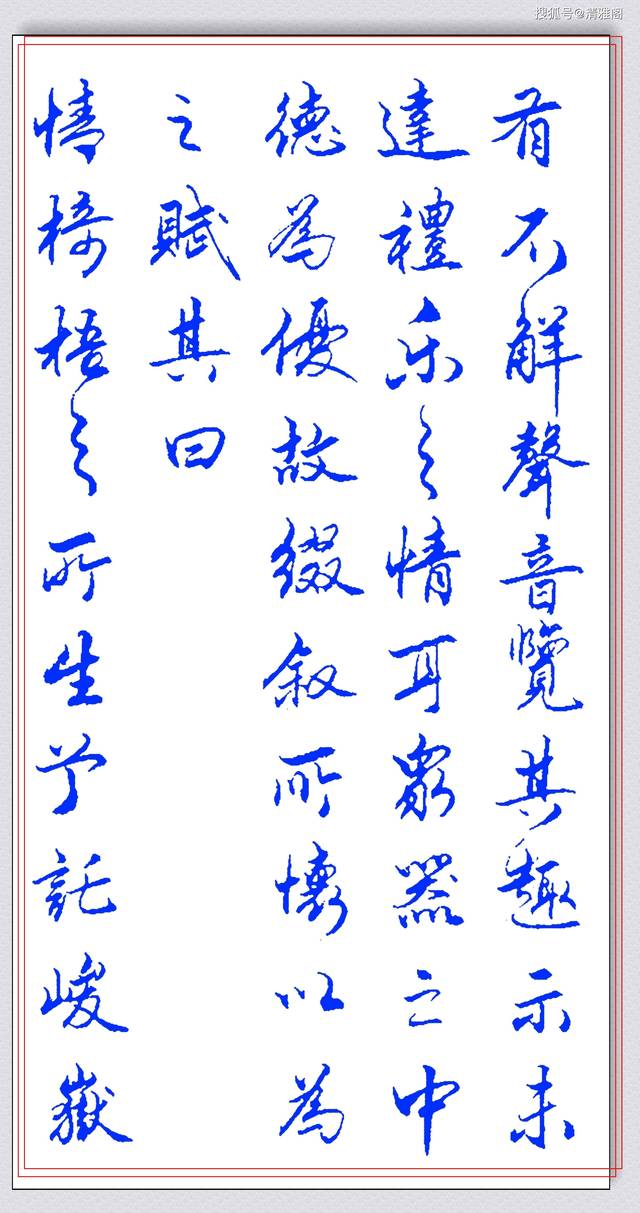 搜狐号@清雅阁
有不觧聲音覽其趣示未
達禮乐之情耳眾器之中
德為優故綴叙所懷以為
之賦其曰
情椅梧之所生兮託峻嶽